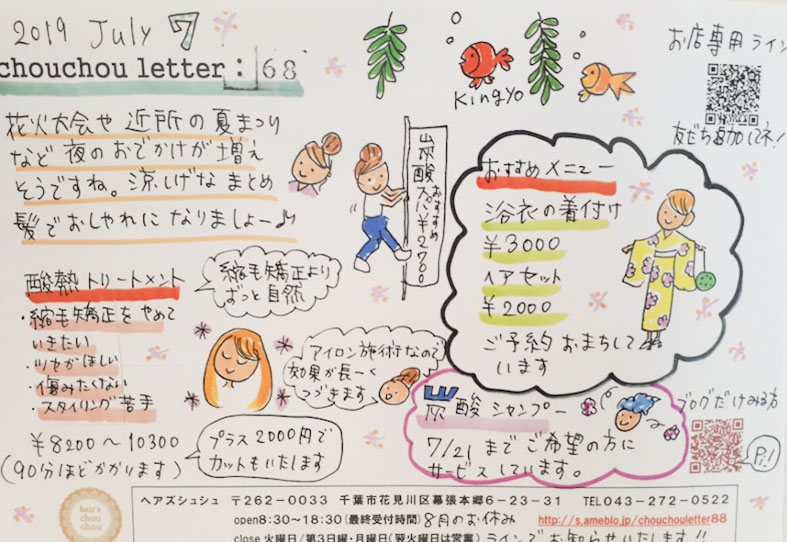 2019 July 7
chouchou letter : 68
花火大会や 近所の夏まつり
など 夜のおでかけが増え
そうですね。涼しげな まとめ
髪でおしゃれに なりましょー♪
Kingyo
お店専用ライン
友だち追加してネ!
炭酸スパ おすすめ ¥2700
おすすめメニュー
浴衣の着付け
¥3000
ヘアセット
¥2000
ご予約 おまちして
います
酸熱トリートメント
・縮毛矯正をやめて
いきたい
・ツヤがほしい
・傷みたくない
・スタイリング苦手
¥8200〜10300
(90分ほどかかります)
縮毛矯正より
ずっと自然
アイロン施術なので
効果が長ーく
つづきます
プラス2000円で
カットもいたします
炭酸シャンプー
7/21 までご希望の方に
サービスしています。
ブログだけみる方
P!
hair's
chou
chou
ヘアズシュシュ 〒262-0033 千葉市花見川区幕張本郷6-23-31 TEL043-272-0522
open8:30~18:30(最終受付時間) 8月のお休み http://s.ameblo.jp/chouchouletter88
close 火曜日/第3日曜・月曜日(翌火曜日は営業) ラインでお知らせいたします!!